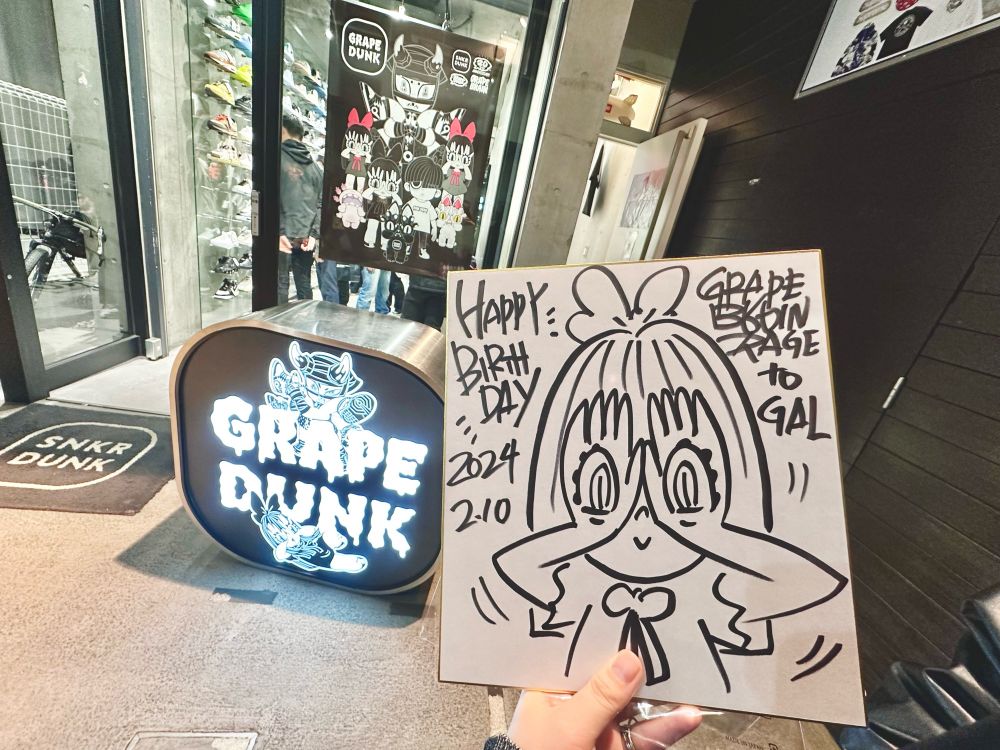 GRAPE
DUNK
SNKR
DUNK
GRAPE
DUNK
SNKR
DUNK
HAPPY
BIRTH
DAY
2024
2.10
GRAPE
BRAIN
RAGE
to
GAL